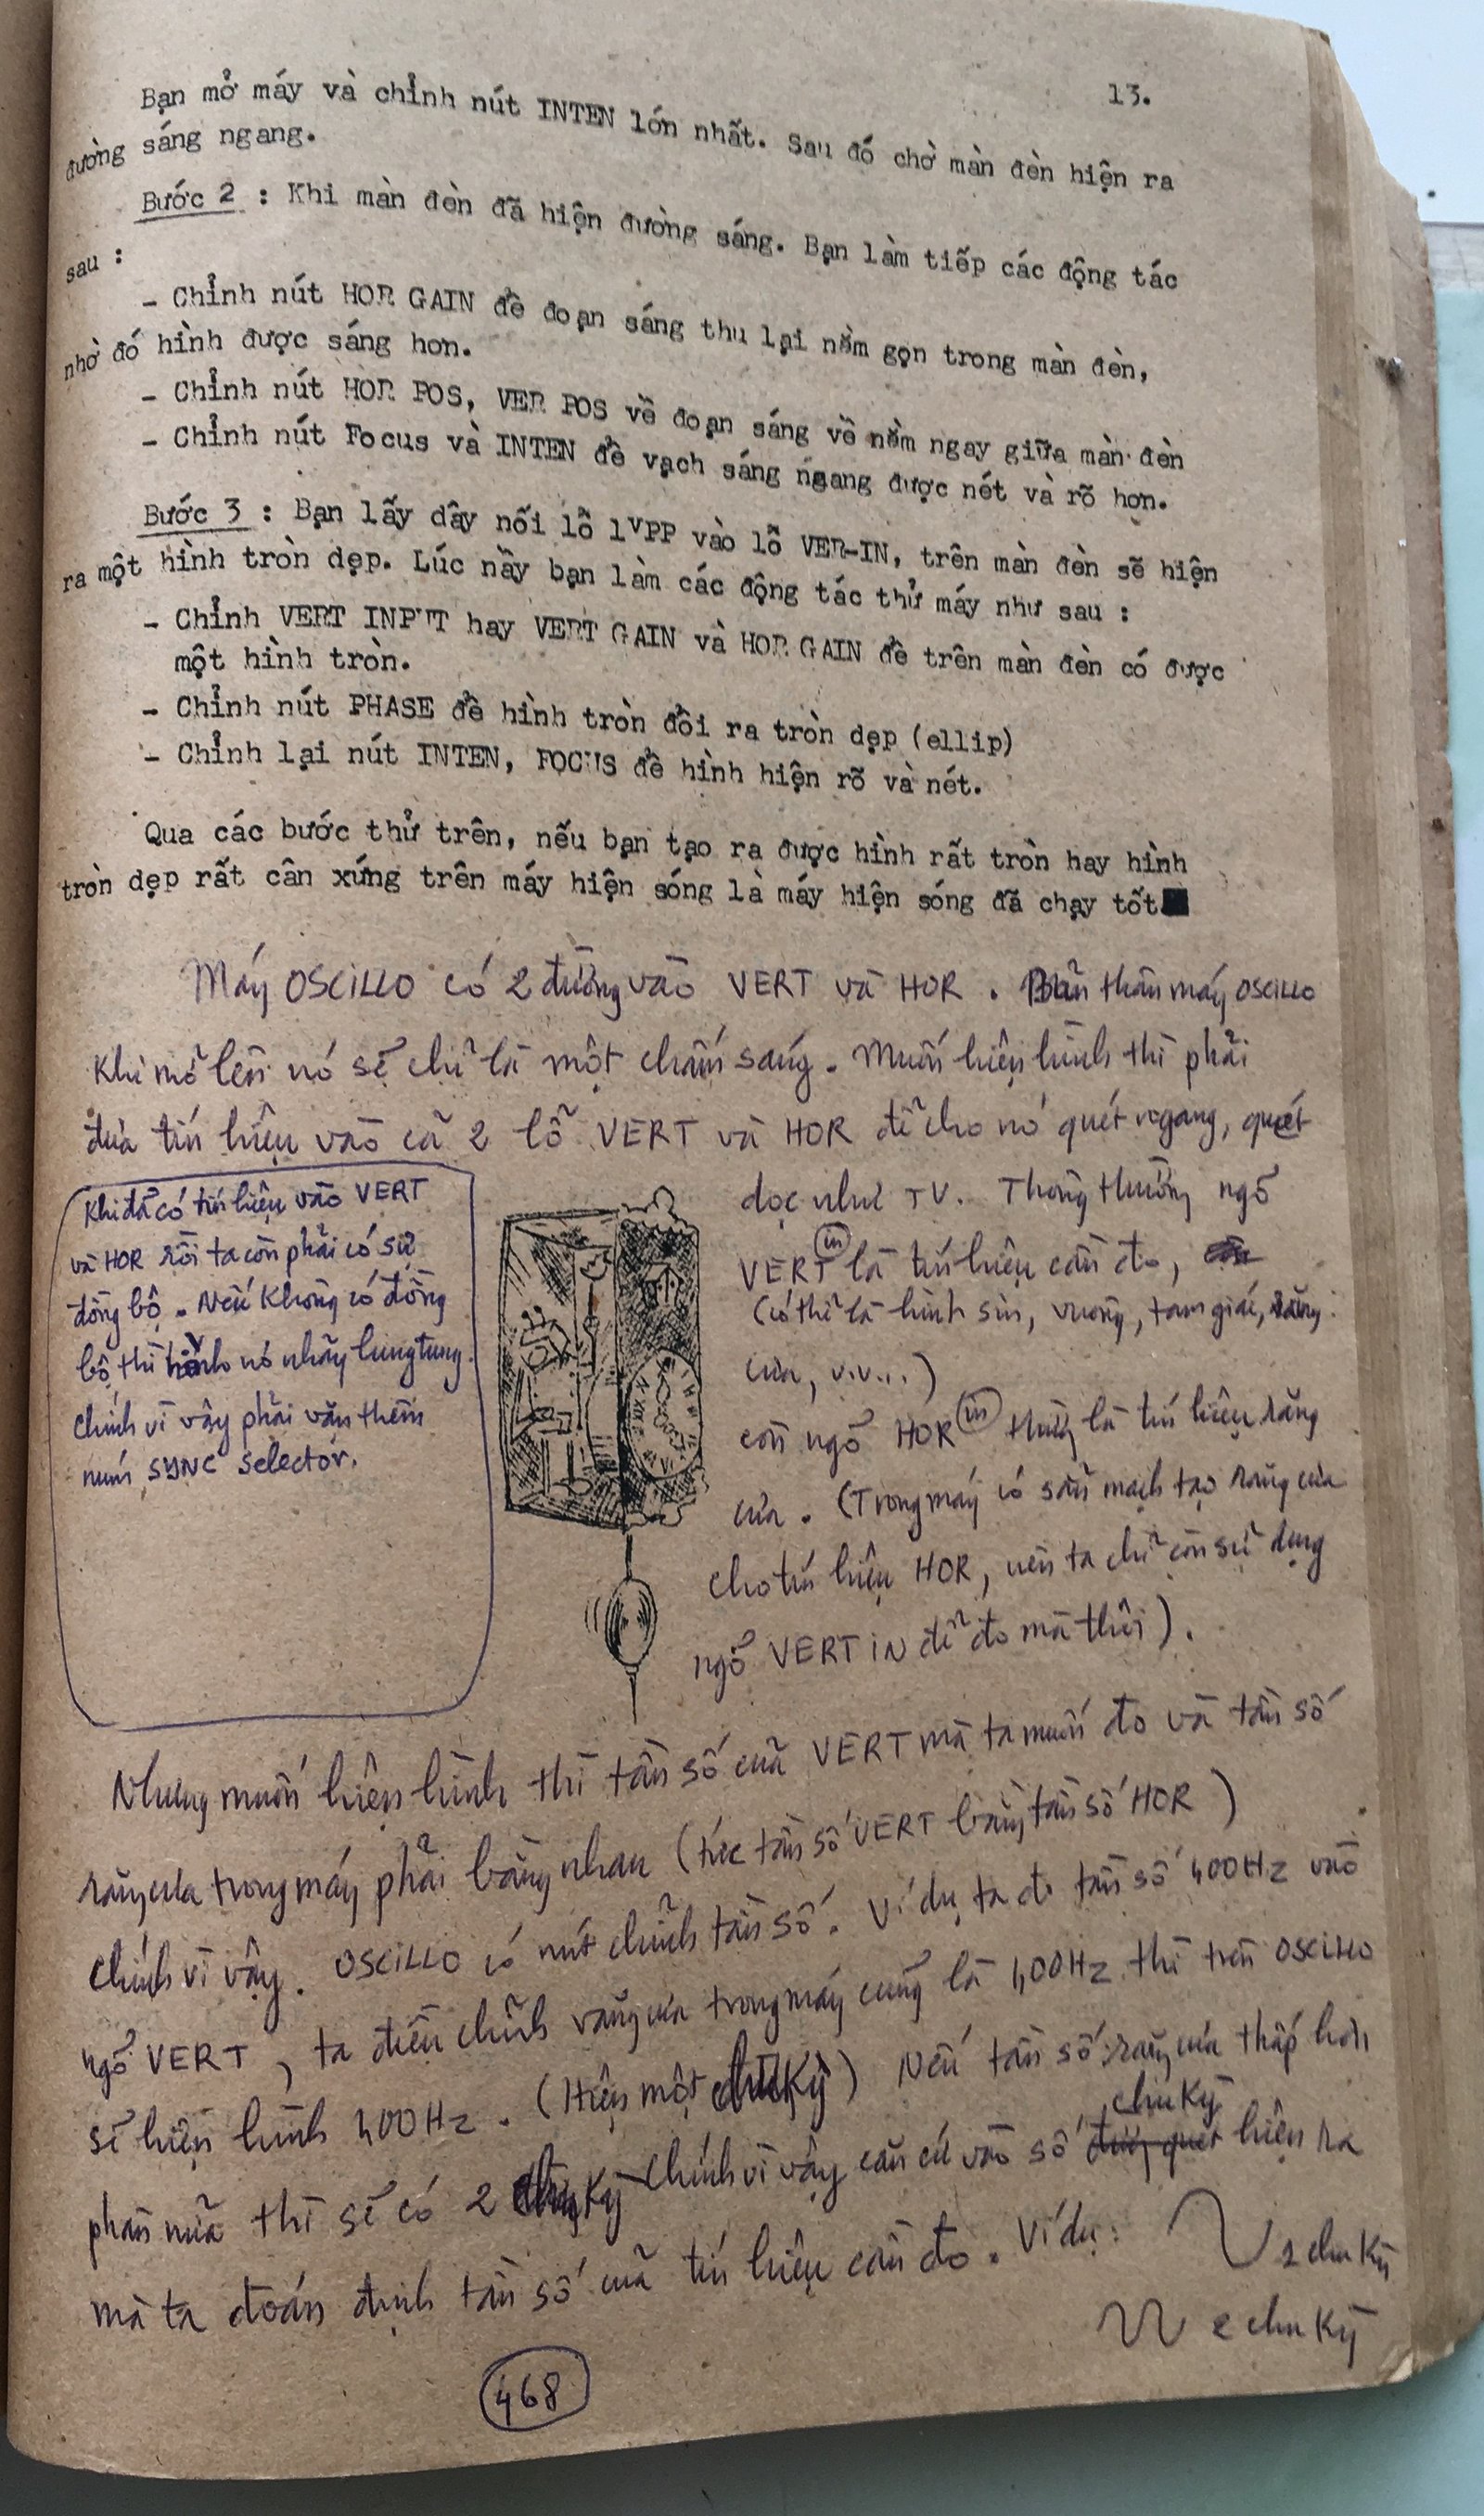 13.
Bạn mở máy và chỉnh nút INTEN lớn nhất. Sau đó chờ màn đèn hiện ra
đường sáng ngang.
Bước 2 : Khi màn đèn đã hiện đường sáng. Bạn làm tiếp các động tác
sau :
- Chỉnh nút HOR GAIN để đoạn sáng thu lại nằm gọn trong màn đèn,
nhờ đó hình được sáng hơn.
- Chỉnh nút HOR POS, VER POS về đoạn sáng về nằm ngay giữa màn đèn
- Chỉnh nút Focus và INTEN để vạch sáng ngang được nét và rõ hơn.
Bước 3 : Bạn lấy dây nối lỗ 1VPP vào lỗ VER-IN, trên màn đèn sẽ hiện
ra một hình tròn dẹp. Lúc nầy bạn làm các động tác thử máy như sau :
- Chỉnh VERT INPUT hay VERT GAIN và HOR GAIN để trên màn đèn có được
một hình tròn.
- Chỉnh nút PHASE để hình tròn đổi ra tròn dẹp (ellip)
- Chỉnh lại nút INTEN, FOCUS để hình hiện rõ và nét.
Qua các bước thử trên, nếu bạn tạo ra được hình rất tròn hay hình
tròn dẹp rất cân xứng trên máy hiện sóng là máy hiện sóng đã chạy tốt
Máy OSCILLO có 2 đường vào VERT và HOR. Bản thân máy OSCILLO
Khi mở lên nó sẽ chỉ là một chấm sáng. Muốn hiện hình thì phải
đưa tín hiệu vào cả 2 lỗ VERT và HOR để cho nó quét ngang, quét
dọc như TV. Thông thường ngõ
VERT in là tín hiệu cần đo,
(có thể là hình sin, vuông, tam giác, răng
cưa, v.v...)
còn ngõ HOR in thường là tín hiệu răng
cưa. (Trong máy có sẵn mạch tạo răng cưa
cho tín hiệu HOR, nên ta chỉ còn sử dụng
ngõ VERT iN để đo mà thôi).
Khi đã có tín hiệu vào VERT
và HOR rồi ta còn phải có sự
đồng bộ. Nếu không có đồng
bộ thì hình nó nhảy lung tung.
Chính vì vậy phải vặn thêm
núm SYNC selector.
Nhưng muốn hiện hình thì tần số của VERT mà ta muốn đo và tần số
răng cưa trong máy phải bằng nhau (tức tần số VERT bằng tần số HOR)
Chính vì vậy. OSCILLO có nút chỉnh tần số. Ví dụ ta đo tần số 400Hz vào
ngõ VERT, ta điều chỉnh răng cưa trong máy cũng là 400Hz thì trên OSCILLO
sẽ hiện hình 400Hz. (Hiện một chu kỳ) Nếu tần số răng cưa thấp hơn
phân nửa thì sẽ có 2 chu kỳ chính vì vậy căn cứ vào số chu kỳ hiện ra
mà ta đoán định tần số của tín hiệu cần đo. Ví dụ: 1 chu kỳ
2 chu kỳ
468